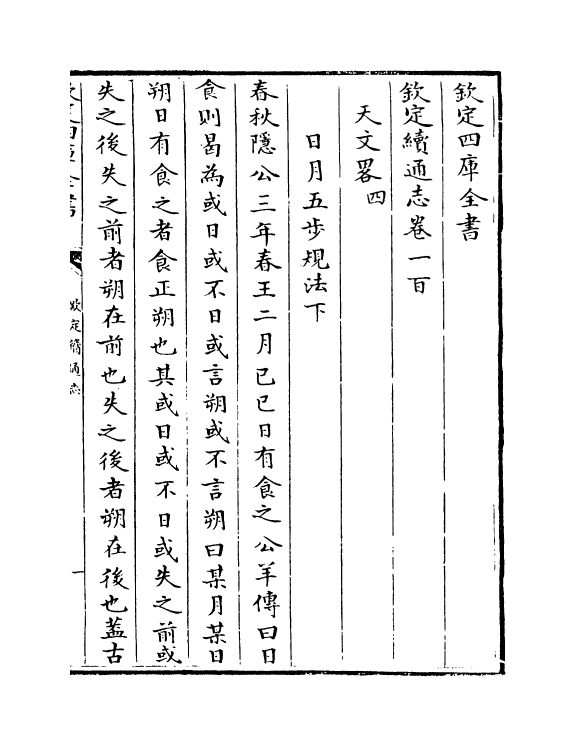 欽定四庫全書
欽定續通志卷一百
天文畧四
日月五步規法下
春秋隱公三年春王二月己巳日有食之公羊傳曰日
食則曷為或日或不日或言朔或不言朔曰某月某日
朔日有食之者食正朔也其或日或不日或失之前或
失之後失之前者朔在前也失之後者朔在後也蓋古
欽定四庫全書
欽定續通志
一